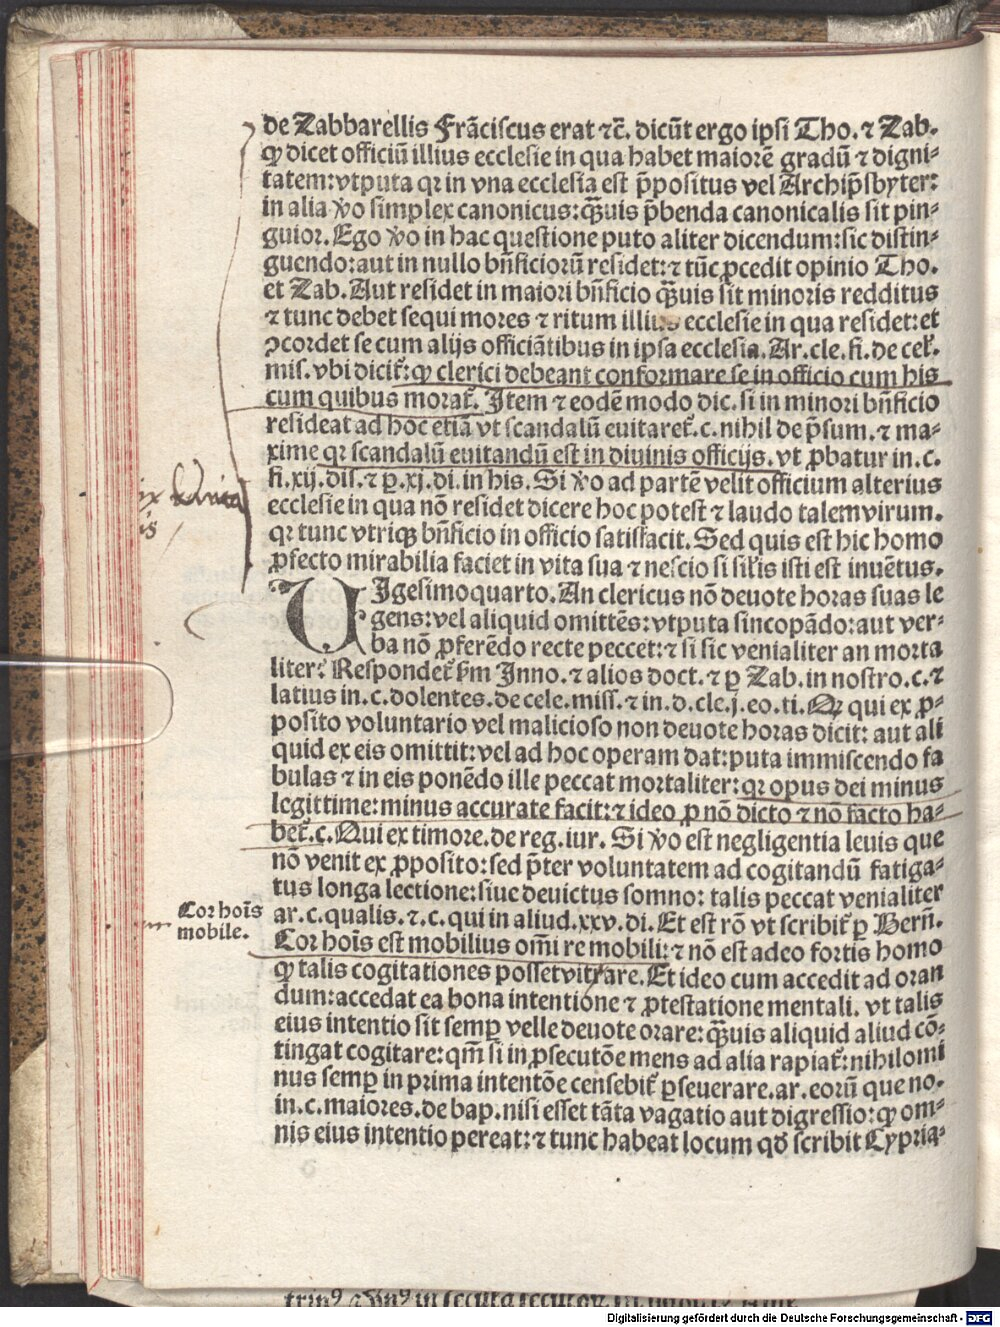 de Zabbarellis Frãciscus erat ⁊c̃. dicũt ergo ipsi Tho. ⁊ Zab.
ꝙ dicet officiũ illius ecclesie in qua habet maiorẽ gradũ ⁊ digni⸗
tatem: vtputa qꝛ in vna ecclesia est p̃positus vel Archip̃sbyter:
in alia ỽo simplex canonicus: ꝗ̃uis p̃benda canonicalis sit pin⸗
guior. Ego ỽo in hac questione puto aliter dicendum: sic distin⸗
guendo: aut in nullo bñficiorũ residet: ⁊ tũc ꝓcedit opinio Tho.
et Zab. Aut residet in maiori bñficio ꝗ̃uis sit minoris redditus
⁊ tunc debet sequi mores ⁊ ritum illius ecclesie in qua residet: et
ꝯcordet se cum alijs officiãtibus in ipsa ecclesia. Ar. cle. fi. de cel̃.
mis̃. vbi dicit̃: ꝙ clerici debeant conformare se in officio cum his
cum quibus morat̃. Item ⁊ eodẽ modo dic. si in minori bñficio
resideat ad hoc etiã vt scandalũ euitaret̃. c. nihil de p̃sum. ⁊ ma⸗
xime qꝛ scandalũ euitandũ est in diuinis officijs. vt ꝓbatur in. c.
fi. xij. dis̃. ⁊ ꝑ. xj. di. in his. Si ỽo ad partẽ velit officium alterius
ecclesie in qua nõ residet dicere hoc potest ⁊ laudo talem virum.
qꝛ tunc vtriqꝫ bñficio in officio satisfacit. Sed quis est hic homo
ꝓfecto mirabilia faciet in vita sua ⁊ nescio si sil̃is isti est inuẽtus.
UIgesimoquarto. An clericus nõ deuote horas suas le
gens: vel aliquid omittẽs: vtputa sincopãdo: aut ver⸗
ba nõ ꝓferẽdo recte peccet: ⁊ si sic venialiter an morta
liter: Respondet̃ ẜm Inno. ⁊ alios doct. ⁊ ꝑ Zab. in nostro. c. ⁊
latius in. c. dolentes. de cele. miss. ⁊ in. d. cle. j. eo. ti. Qꝛ qui ex ꝓ⸗
posito voluntario vel malicioso non deuote horas dicit: aut ali
quid ex eis omittit: vel ad hoc operam dat: puta immiscendo fa
bulas ⁊ in eis ponẽdo ille peccat mortaliter: qꝛ opus dei minus
legittime: minus accurate facit: ⁊ ideo ꝓ nõ dicto ⁊ nõ facto ha⸗
bet̃. c. Qui ex timore. de reg. iur. Si ỽo est negligentia leuis que
nõ venit ex ꝓposito: sed p̃ter voluntatem ad cogitandũ fatiga⸗
tus longa lectione: siue deuictus somno: talis peccat venialiter
ar. c. qualis. ⁊. c. qui in aliud. xxv. di. Et est rõ vt scribit̃ ꝑ Bern̄.
Cor hoĩs est mobilius om̃i re mobili: ⁊ nõ est adeo fortis homo
ꝙ talis cogitationes posset vitare. Et ideo cum accedit ad oran
dum: accedat ea bona intentione ⁊ ꝓtestatione mentali. vt talis
eius intentio sit semꝑ velle deuote orare: ꝗ̃uis aliquid aliud cõ⸗
tingat cogitare: qm̃ si in ꝓsecutõe mens ad alia rapiat̃: nihilomi
nus semꝑ in prima intentõe censebit̃ ꝑseuerare. ar. eorũ que no.
in. c. maiores. de bap. nisi esset tãta vagatio aut digressio: ꝙ om⸗
nis eius intentio pereat: ⁊ tunc habeat locum qđ scribit Cypria⸗
Cor hoĩs
mobile.
Digitalisierung gefördert durch die Deutsche Forschungsgemeinschaft - DFG